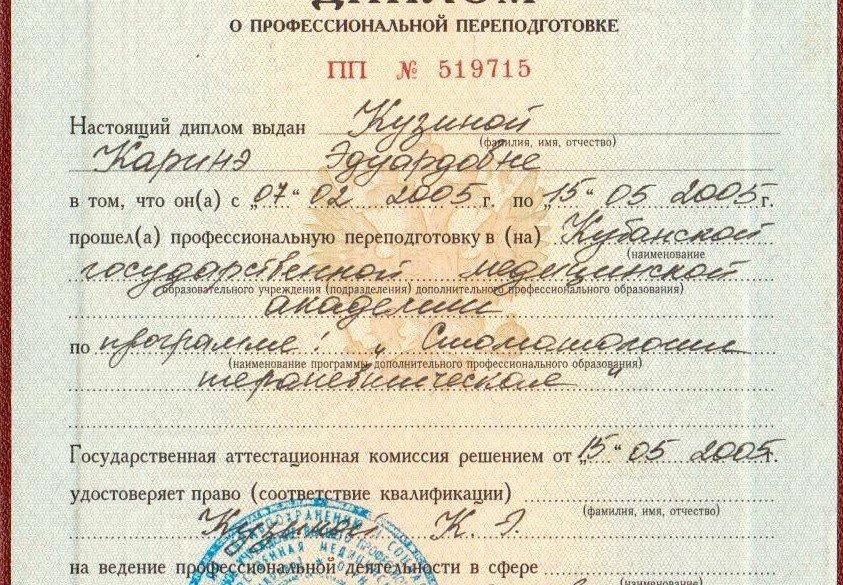 ДИПЛОМ
О ПРОФЕССИОНАЛЬНОЙ ПЕРЕПОДГОТОВКЕ
ПП № 519715
Настоящий диплом выдан Кузиной
(фамилия, имя, отчество)
Каринэ Эдуардовне
в том, что он(а) с „07“ 02 2005 г. по „15“ 05 2005 г.
прошел(а) профессиональную переподготовку в (на) Кубанской
(наименование
государственной медицинской
образовательного учреждения (подразделения) дополнительного профессионального образования)
академии
по программе: „Стоматология
(наименование программы дополнительного профессионального образования)
терапевтическая“
Государственная аттестационная комиссия решением от „15“ 05 2005 г.
удостоверяет право (соответствие квалификации)
(фамилия, имя, отчество)
Кузиной К. Э.
на ведение профессиональной деятельности в сфере
(наименование